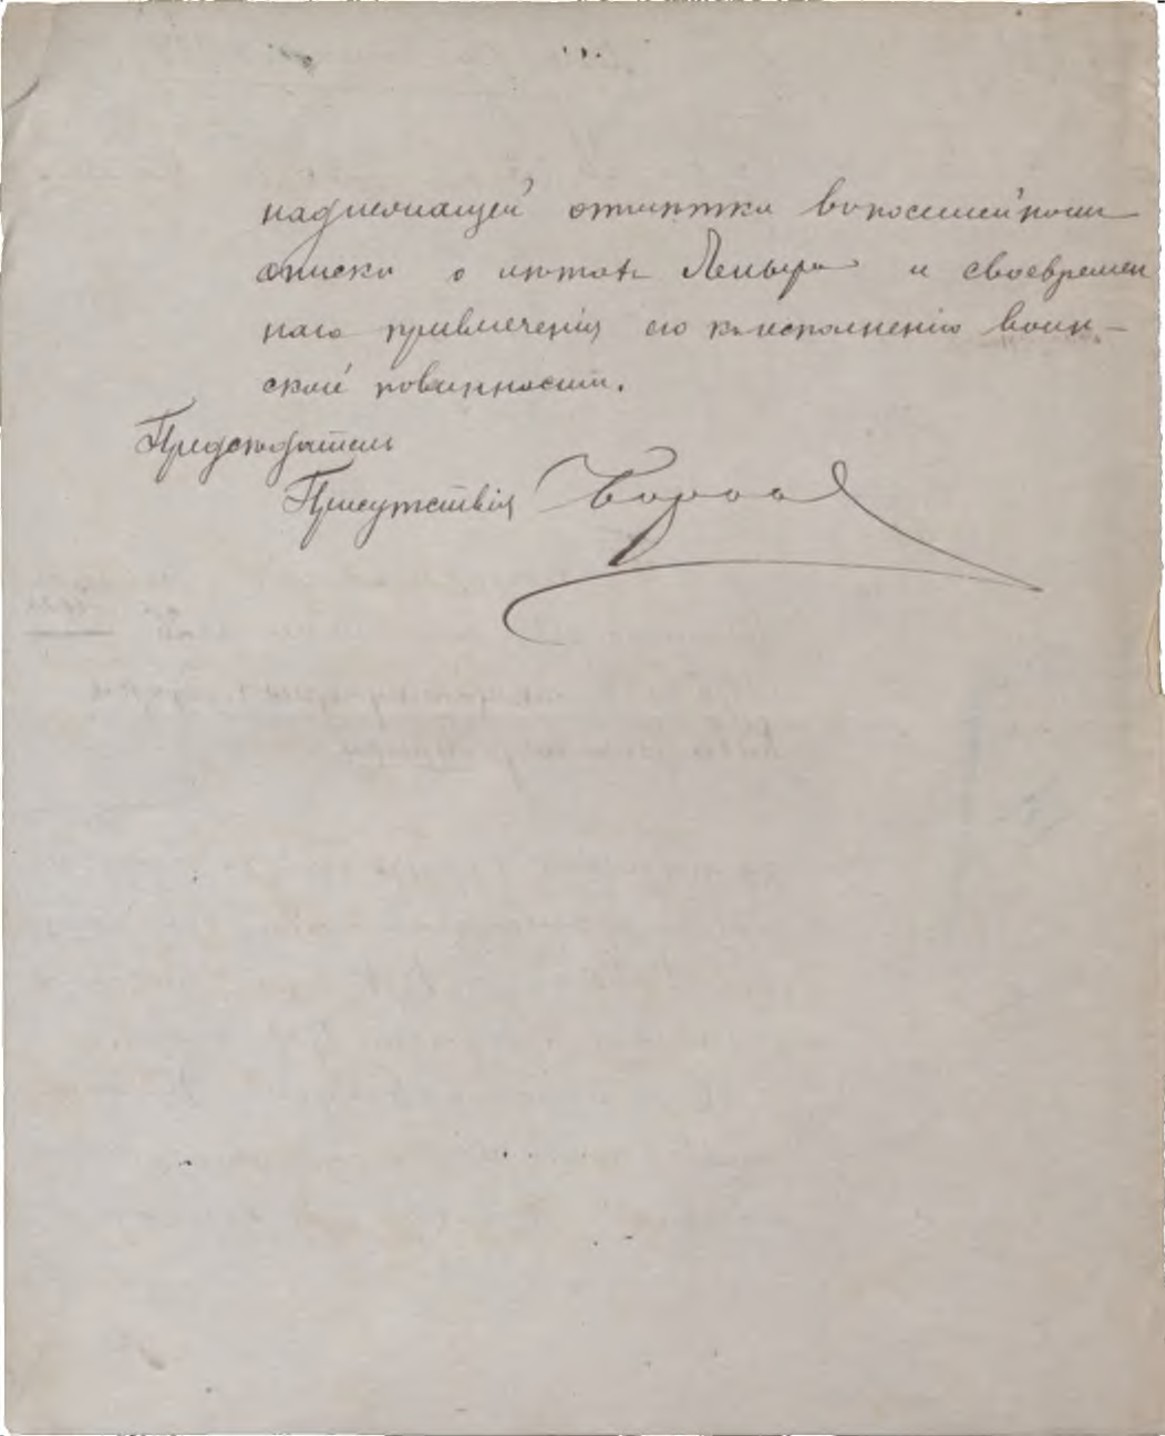 надлежащей отмѣтки въ посемейномъ
списке о лѣтахъ Лейбы и своевремен
наго привлеченія его къ исполненію воин-
ской повинности.
Предсѣдатель
Присутствія